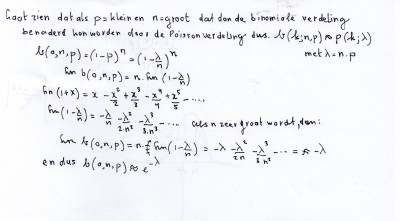 Laat zien dat als p=klein en n=groot dat dan de binomiale verdeling
benaderd kan worden door de Poissonverdeling dus. b(k;n,p) ≈ p(k;λ)
met λ=n.p
b(0,n,p)=(1-p)^n=(1-λ/n)^n
ln b(0,n,p)=n.ln(1-λ/n)
ln(1+x)=x-x²/2+x³/3-x⁴/4+x⁵/5-....
ln(1-λ/n)=-λ/n-λ²/2.n²-λ³/3.n³-.... als n zeer groot wordt, dan:
ln b(0,n,p)=n.ln(1-λ/n)=-λ-λ²/2n-λ³/3n²-...=≈-λ
en dus b(0,n,p)≈e^-λ